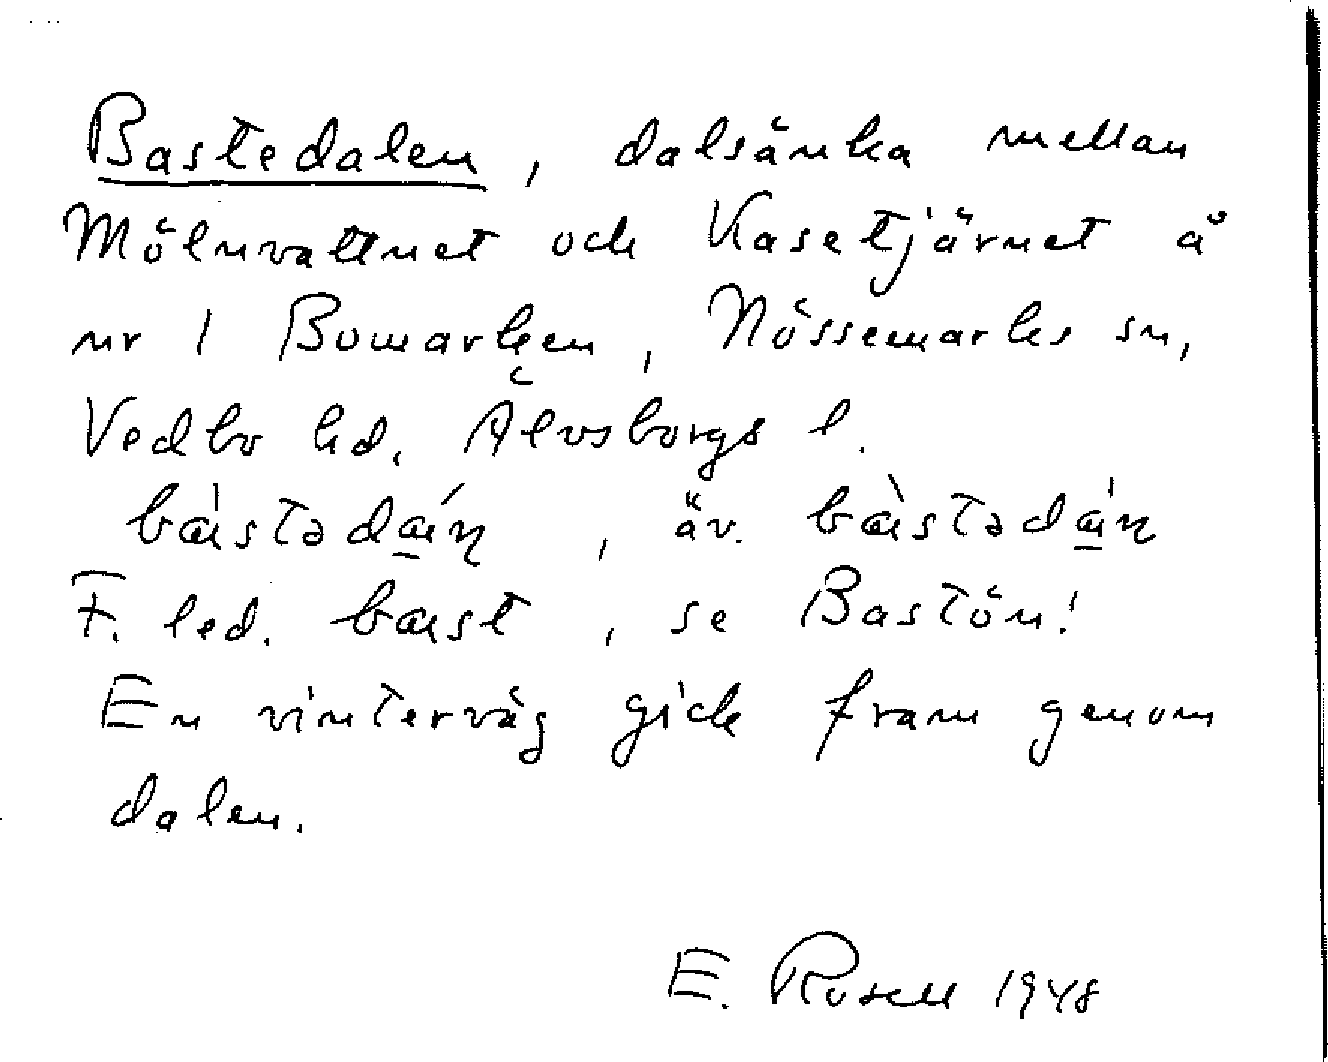 Bastedalen, dalsänka mellan
Mölnvattnet och Kasetjärnet å
nr 1 Bomarken, Nössemarks sn,
Vedbo hd, Älvsborgs l.
bàstədán, äv. bàstədán
F. led. bast, se Bastön!
En vinterväg gick fram genom
dalen.
E. Rosell 1948